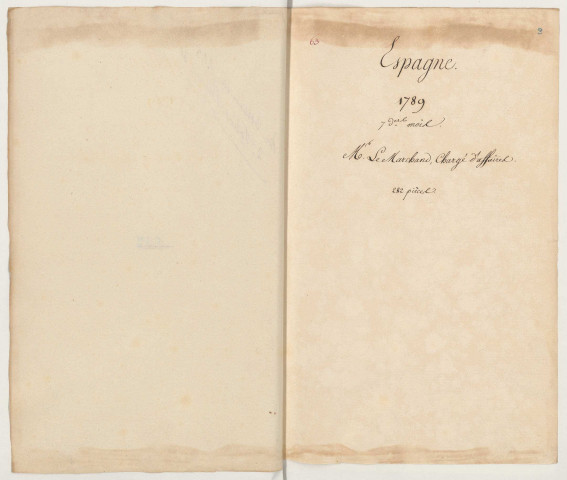 63
2
Espagne.
1789
7 d.ers mois.
Mr. Le Marchand, Chargé d'affaires.
282 pièces.